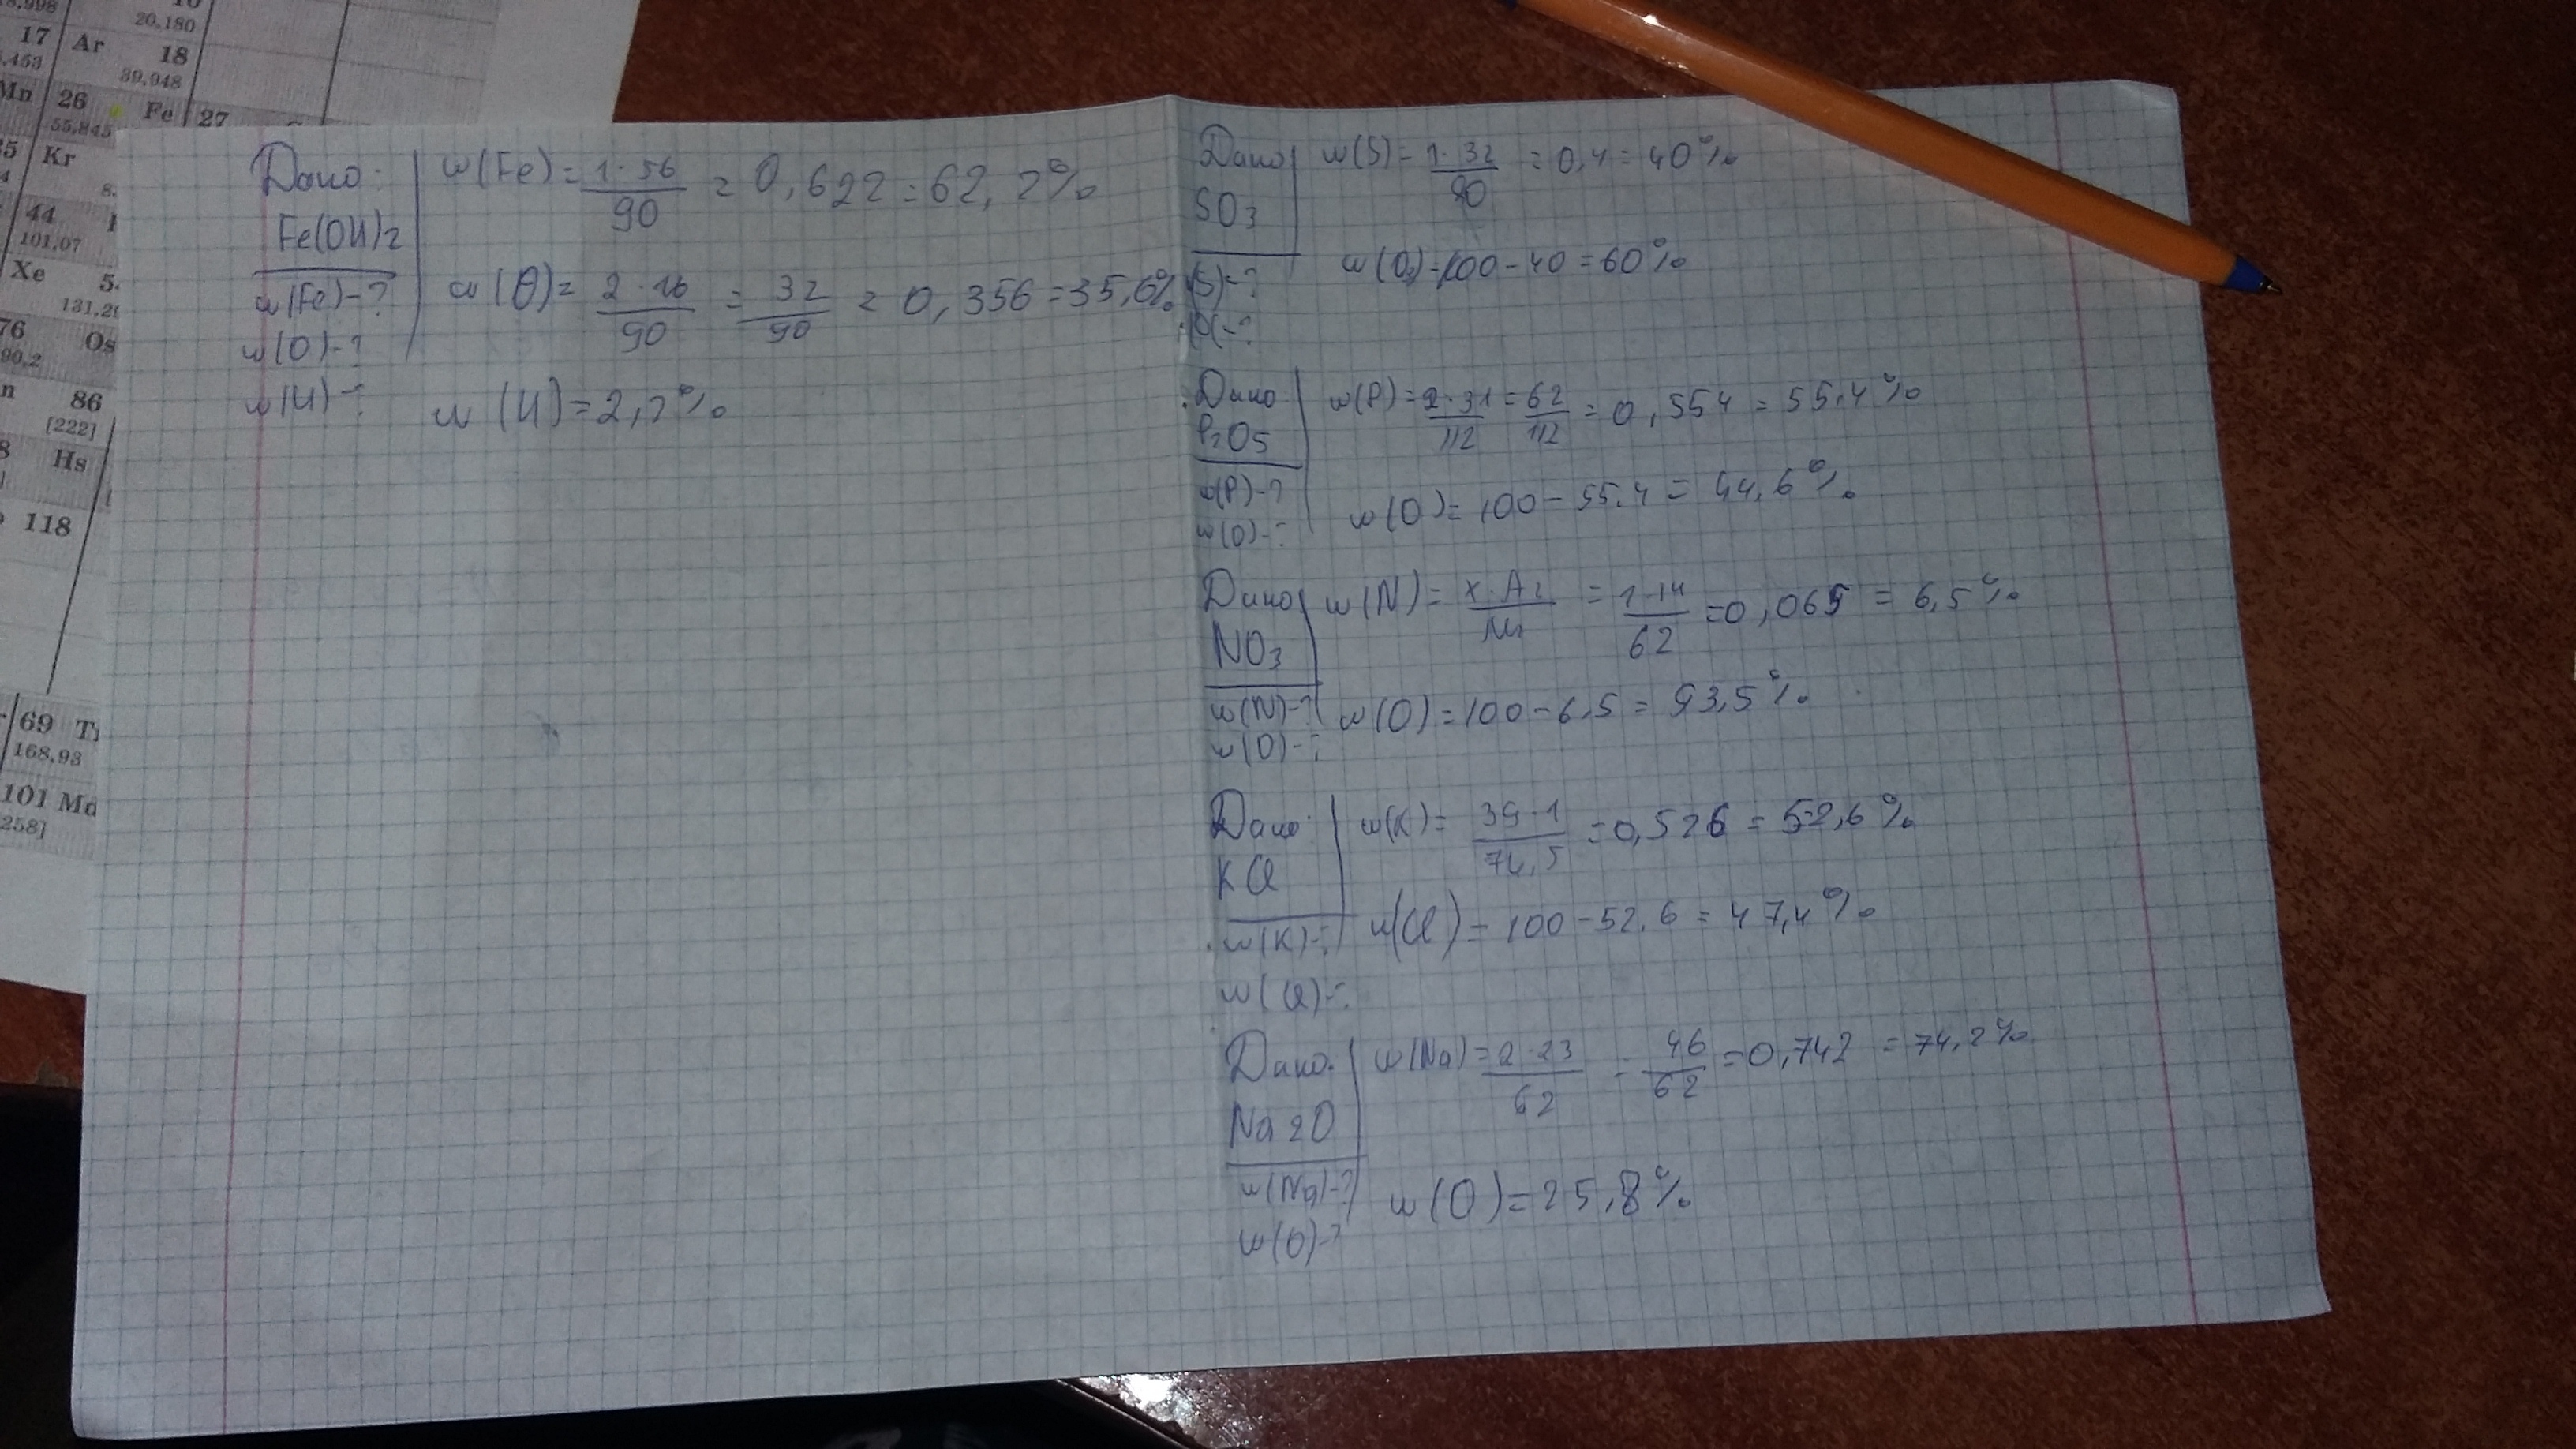 20,180
17 Ar 18
39,948
Mn 26 Fe 27
55,845
Kr
44
101,07
Xe
131,29
76 Os
86
[222]
Hs
118
69
168,93
101 Md
258]
Дано:
Fe(OH)2
w(Fe)-?
w(O)-?
w(H)-?
w(Fe)=1·56/90=0,622=62,2%
w(O)=2·16/90=32/90=0,356=35,6%
w(H)=2,2%
Дано
SO3
(S)-?
w(S)=1·32/80=0,4=40%
w(O)=100-40=60%
Дано
P2O5
w(P)-?
w(O)-?
w(P)=2·31/112=62/112=0,554=55,4%
w(O)=100-55,4=44,6%
Дано
NO3
w(N)-?
w(O)-?
w(N)=x·Ar/Mr=1·14/62=0,065=6,5%
w(O)=100-6,5=93,5%
Дано:
KCl
w(K)-?
w(Cl)-?
w(K)=39·1/74,5=0,526=52,6%
w(Cl)=100-52,6=47,4%
Дано:
Na2O
w(Na)-?
w(O)-?
w(Na)=2·23/62=46/62=0,742=74,2%
w(O)=25,8%